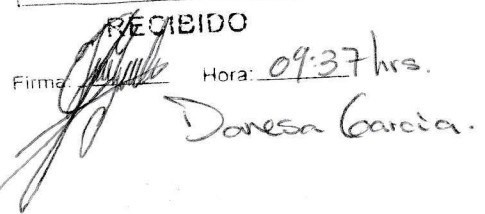 RECIBIDO
Firma: Hora: 09:37 hrs.
Danesa García.